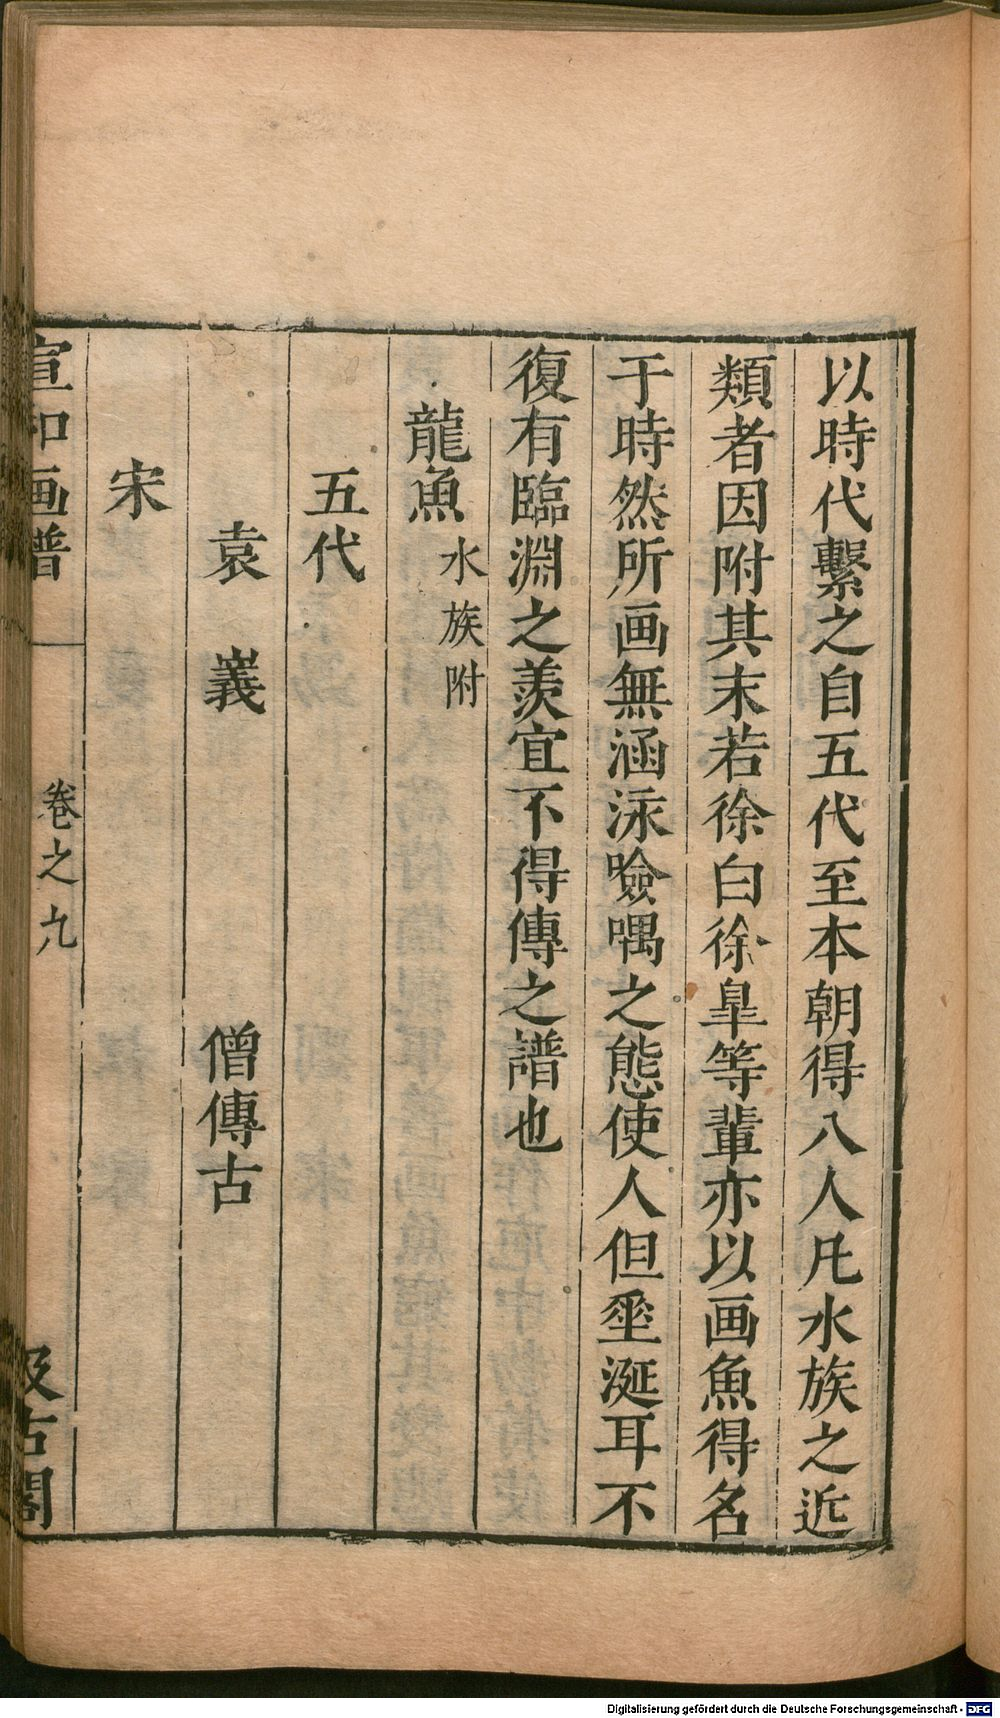 以時代繫之自五代至本朝得八人凡水族之近
類者因附其末若徐白徐皐等輩亦以画魚得名
于時然所画無涵泳噞喁之態使人但垂涎耳不
復有臨淵之羨宜不得傳之譜也
龍魚 水族附
五代
袁嶬 僧傳古
宋
宣和画譜 卷之九 汲古閣
Digitalisierung gefördert durch die Deutsche Forschungsgemeinschaft - DFG